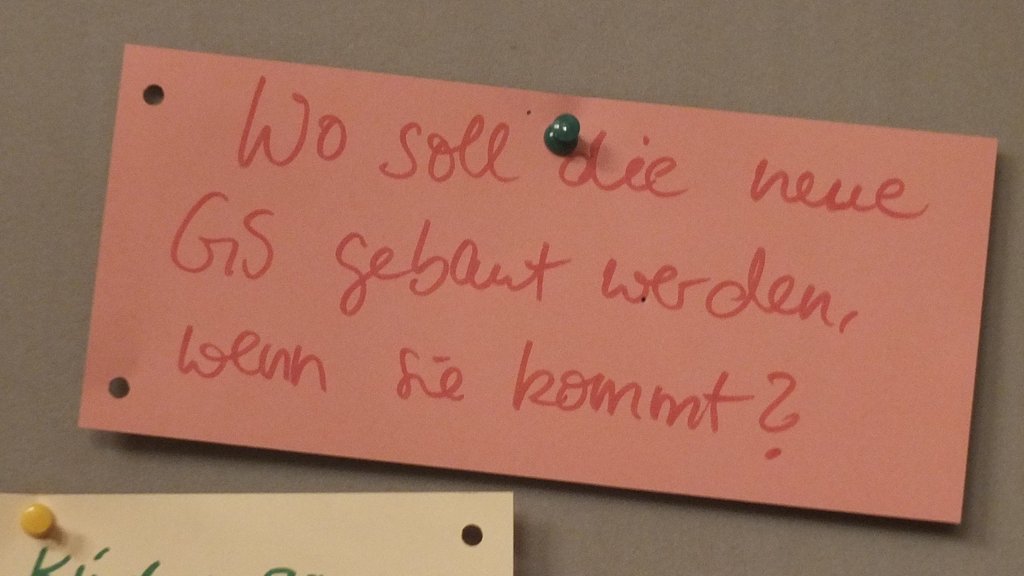 Wo soll die neue
GS gebaut werden,
wenn sie kommt?